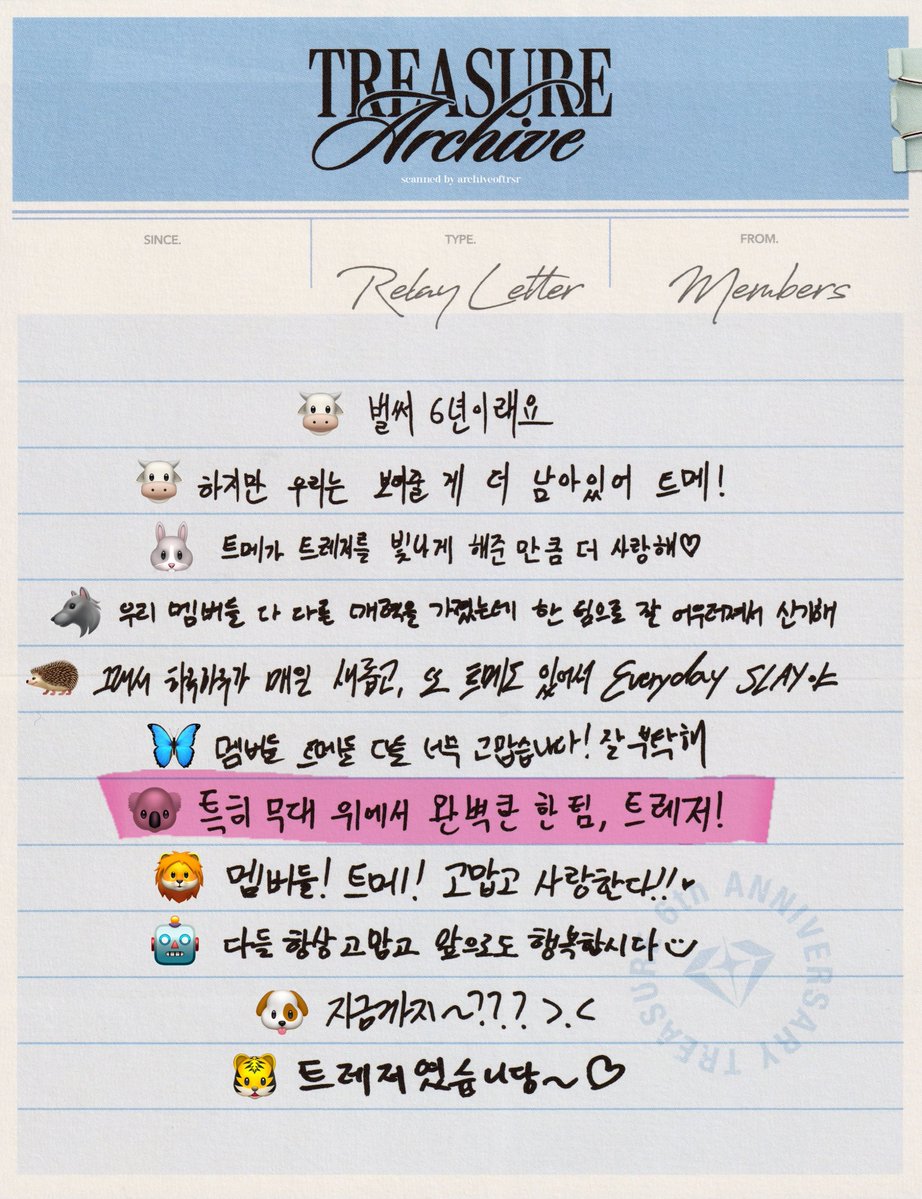 TREASURE
Archive
scanned by archiveoftrsr
SINCE.
TYPE.
FROM.
Relay Letter
Members
벌써 6년이래요
하지만 우리는 보여줄 게 더 남아있어 트메!
트메가 트레저를 빛나게 해준 만큼 더 사랑해♡
우리 멤버들 다 다른 매력을 가졌는데 한 팀으로 잘 어우러져서 신기해
그래서 하루하루가 매일 새롭고, 또 트메도 있어서 Everyday SLAY야
멤버들 트메들 다들 너무 고맙습니다! 잘 부탁해
특히 무대 위에서 완벽한 한 팀, 트레저!
멤버들! 트메! 고맙고 사랑한다!!♥
다들 항상 고맙고 앞으로도 행복합시다
지금까지~??? >.<
트레저였습니당~♡
TREASURE 6th ANNIVERSARY